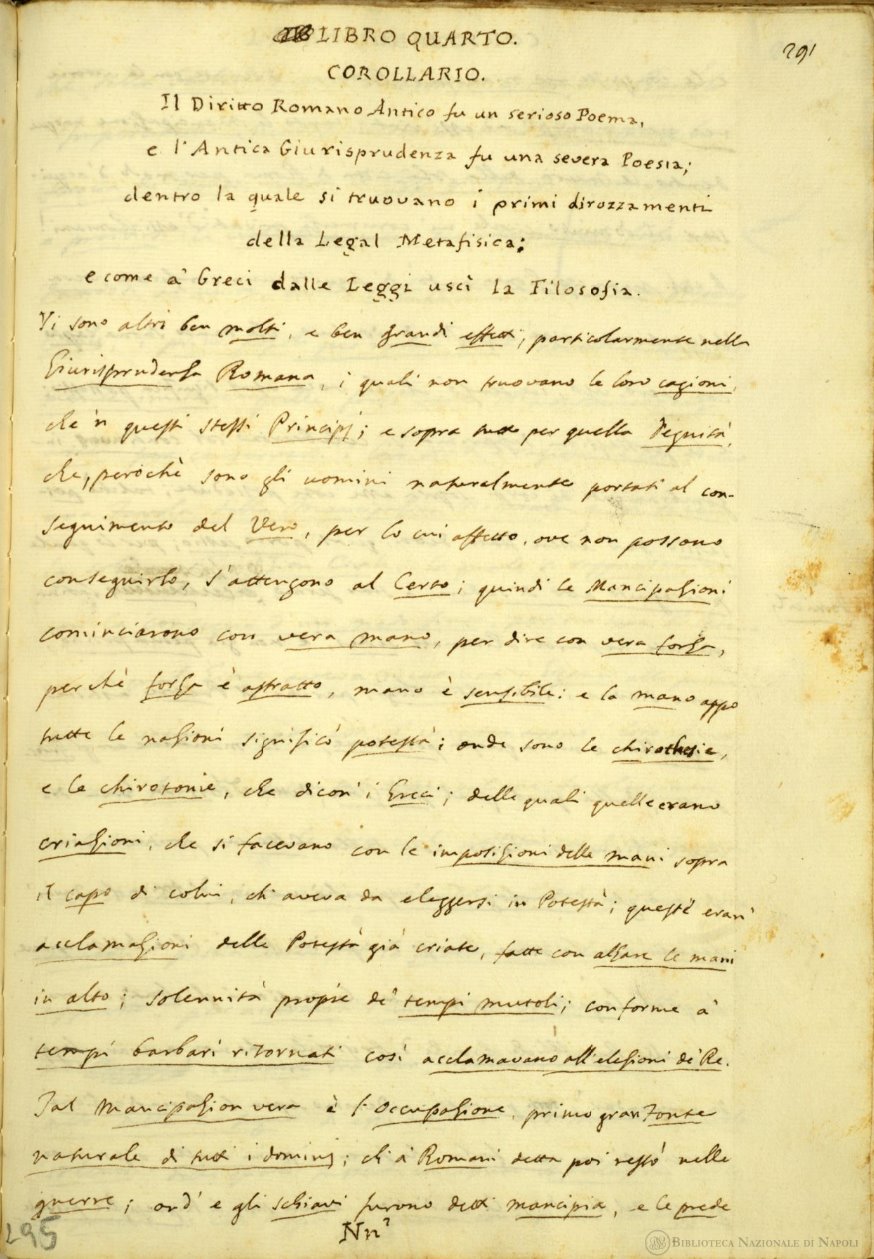 LIBRO QUARTO.
291
COROLLARIO.
Il Diritto Romano Antico fu un serioso Poema,
e l'Antica Giurisprudenza fu una severa Poesia;
dentro la quale si truovano i primi dirozzamenti
della Legal Metafisica;
e come a' Greci dalle Leggi uscì la Filosofia.
Vi sono altri ben molti, e ben grandi effetti, particolarmente nella
Giurisprudenza Romana, i quali non truovano le loro cagioni,
che 'n questi stessi Principj; e sopra tutto per quella Degnità,
che, perochè sono gli uomini naturalmente portati al con-
seguimento del Vero, per lo cui affetto, ove non possono
conseguirlo, s'attengono al Certo; quindi le Mancipazioni
cominciarono con vera mano, per dire con vera forza,
perchè forza è astratto, mano è sensibile: e la mano appo
tutte le nazioni significò potestà; onde sono le chirothesie,
e le chirotonie, che dicon' i Greci; delle quali quelle erano
criazioni, che si facevano con le imposizioni delle mani sopra
il capo di colui, ch' aveva da eleggersi in Potestà; queste eran'
acclamazioni delle Potestà già criate, fatte con alzare le mani
in alto; solennità propie de' tempi mutoli; conforme a'
tempi barbari ritornati così acclamavano all'elezioni de' Re.
Tal Mancipazion vera è l'Occupazione, primo gran Fonte
naturale di tutti i dominj; ch' a' Romani detta poi restò nelle
guerre; ond' e gli schiavi furono detti mancipia, e le prede
Nn2
295
BIBLIOTECA NAZIONALE DI NAPOLI